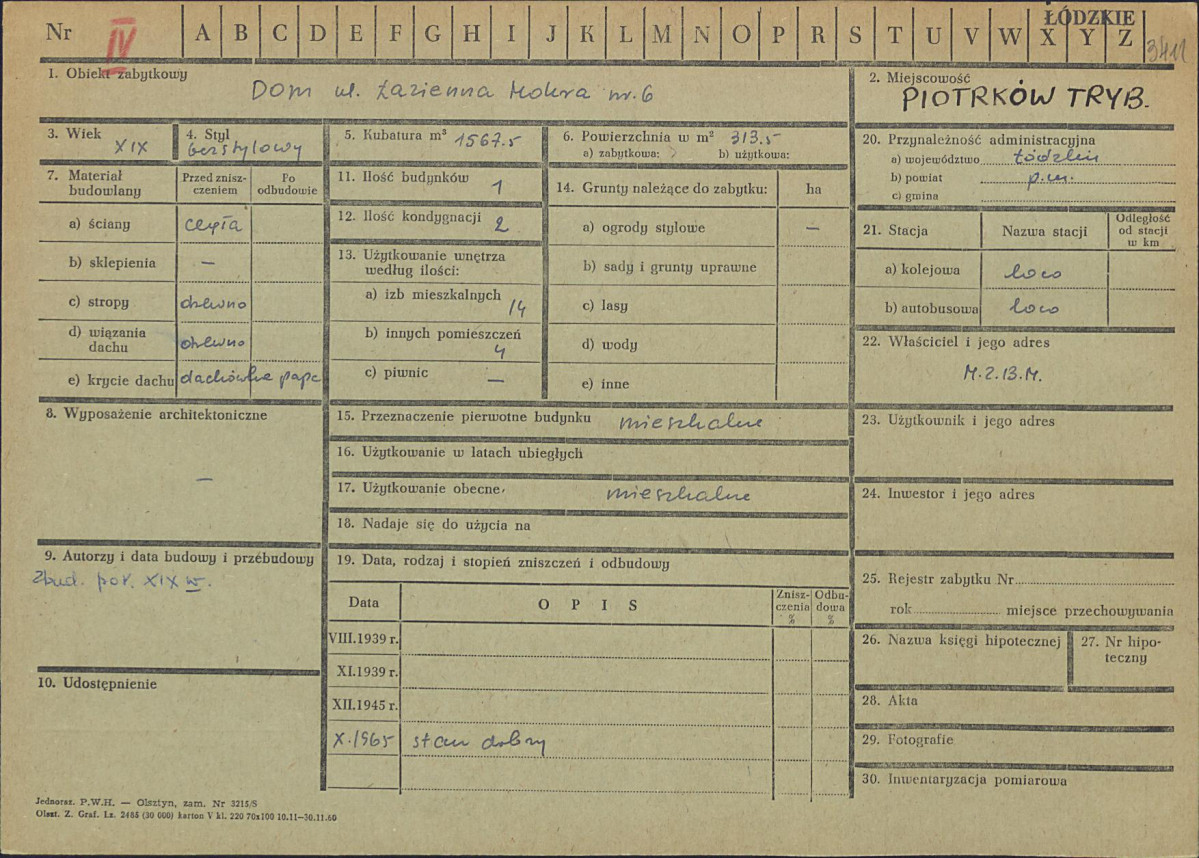 Nr IV A B C D E F G H I J K L M N O P R S T U V W X Y Z
ŁÓDZKIE
3411
1. Obiekt zabytkowy
Dom ul. Łazienna Mokra nr. 6
2. Miejscowość
PIOTRKÓW TRYB.
3. Wiek
XIX
4. Styl
bezstylowy
5. Kubatura m³ 1567.5
6. Powierzchnia w m² 313.5
a) zabytkowa: b) użytkowa:
7. Materiał budowlany
Przed zniszczeniem
Po odbudowie
a) ściany cegła
b) sklepienia —
c) stropy drewno
d) wiązania dachu drewno
e) krycie dachu dachówka papa
8. Wyposażenie architektoniczne
—
9. Autorzy i data budowy i przebudowy
Zbud. poł. XIX w.
10. Udostępnienie
11. Ilość budynków 1
12. Ilość kondygnacji 2
13. Użytkowanie wnętrza
według ilości:
a) izb mieszkalnych 14
b) innych pomieszczeń 4
c) piwnic —
14. Grunty należące do zabytku: ha
a) ogrody stylowe —
b) sady i grunty uprawne
c) lasy
d) wody
e) inne
15. Przeznaczenie pierwotne budynku mieszkalne
16. Użytkowanie w latach ubiegłych
17. Użytkowanie obecne mieszkalne
18. Nadaje się do użycia na
19. Data, rodzaj i stopień zniszczeń i odbudowy
Data OPIS Zniszczenia % Odbudowa %
VIII.1939 r.
XI.1939 r.
XII.1945 r.
X.1965 stan dobry
20. Przynależność administracyjna
a) województwo łódzkie
b) powiat p.m.
c) gmina
21. Stacja Nazwa stacji Odległość od stacji w km
a) kolejowa loco
b) autobusowa loco
22. Właściciel i jego adres
M.Z.B.M.
23. Użytkownik i jego adres
24. Inwestor i jego adres
25. Rejestr zabytku Nr
rok miejsce przechowywania
26. Nazwa księgi hipotecznej
27. Nr hipoteczny
28. Akta
29. Fotografie
30. Inwentaryzacja pomiarowa
Jednoraz. P.W.H. — Olsztyn, zam. Nr 3215/S
Olszt. Z. Graf. Lz. 2485 (30 000) karton V kl. 220 70x100 10.11—30.11.60